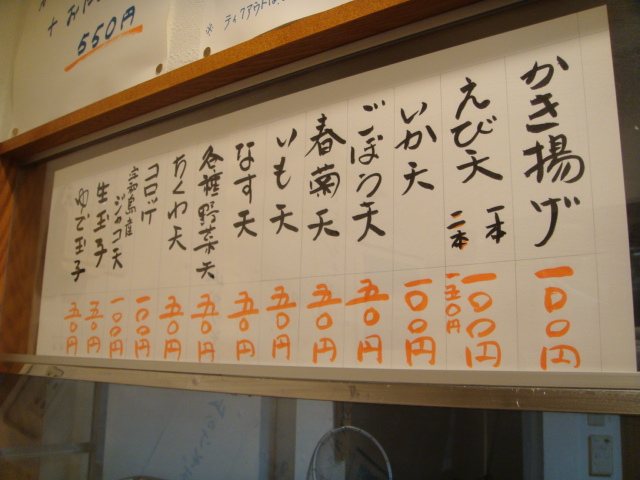 550円
かき揚げ 一〇〇円
えび天 一本 一〇〇円
二本 一五〇円
いか天 一〇〇円
ごぼう天 五〇円
春菊天 五〇円
いも天 五〇円
なす天 五〇円
各種野菜天 五〇円
ちくわ天 五〇円
コロッケ 一〇〇円
宇和島産
ジャコ天 一〇〇円
生玉子 五〇円
ゆで玉子 五〇円